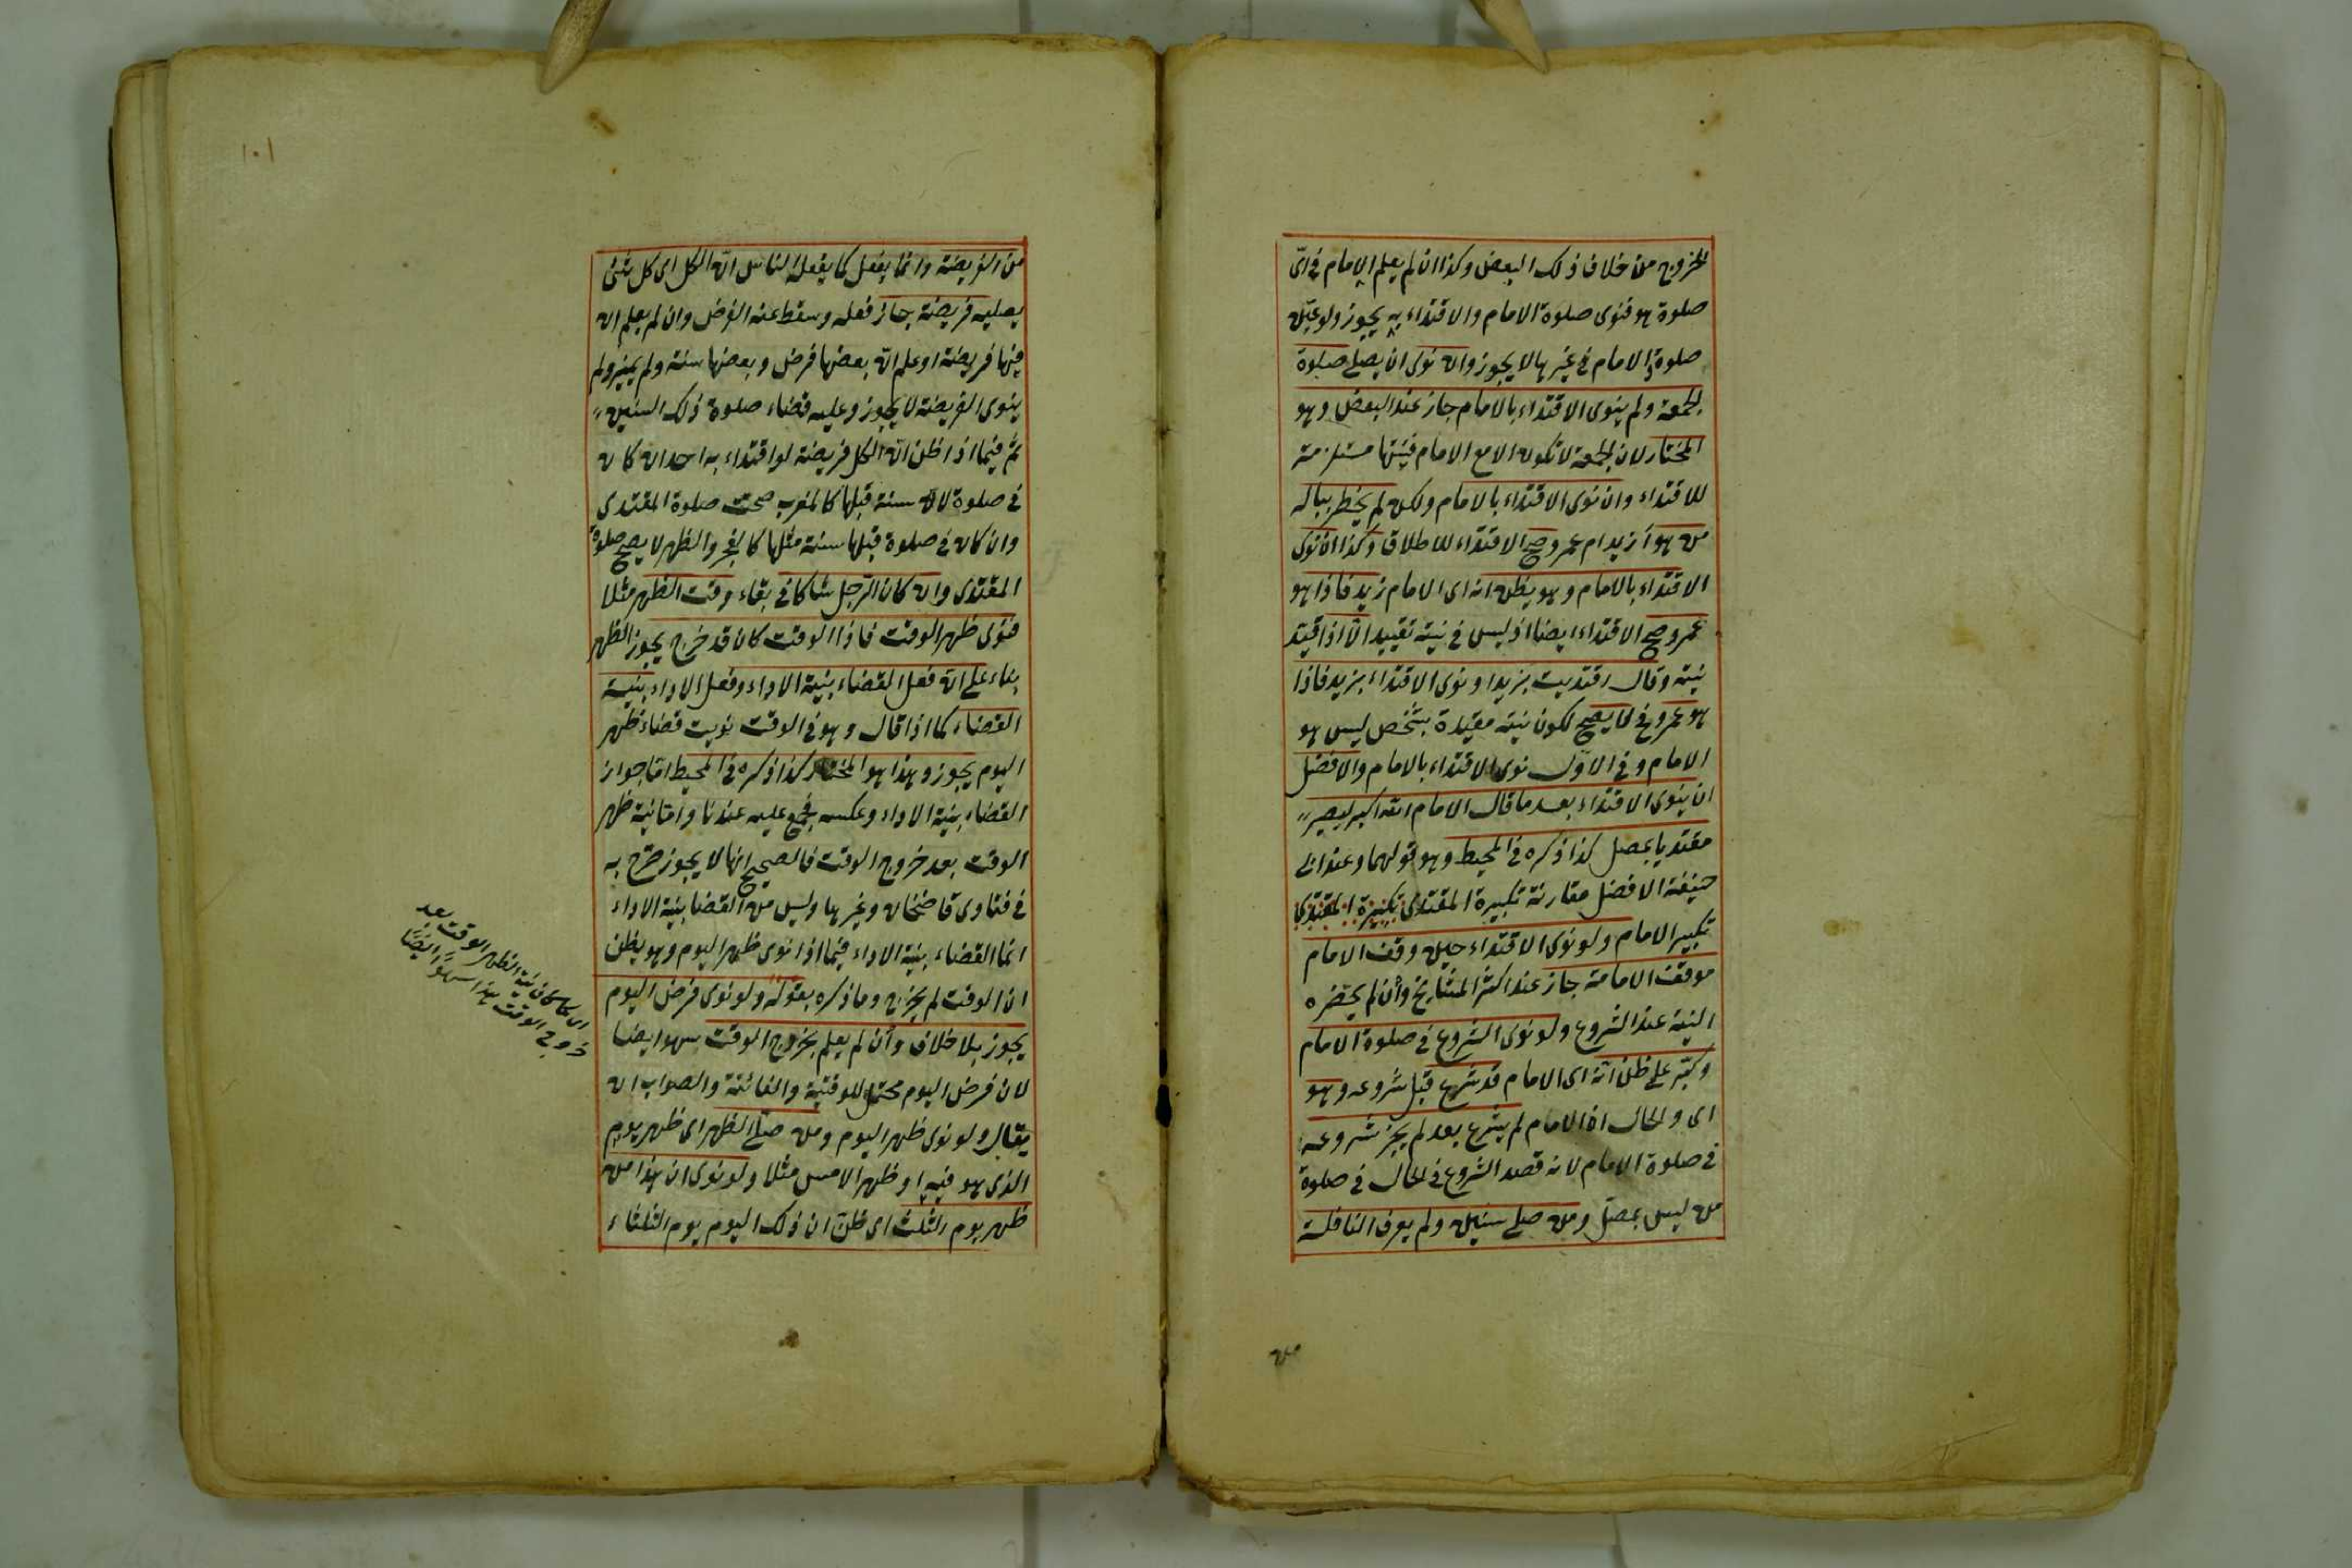 الخروج من خلاف ذلك البعض وكذا ان لم يعلم الامام في اىّ
صلوة هو فنوى صلوة الامام والاقتداء به يجوز ولو عيّن
صلوة الامام في غيرها لا يجوز وان نوى ان يصلى صلوة
الجمعة ولم ينوى الاقتداء بالامام جاز عند البعض وهو
المختار لان الجمعة لا تكون الا مع الامام فنيتها مستلزمة
للاقتداء وان نوى الاقتداء بالامام ولكن لم يخطر بباله
من هو أزيد ام عمرو صح الاقتداء للاطلاق وكذا ان نوى
الاقتداء بالامام وهو يظن انه اى الامام زيد فاذا هو
عمرو صح الاقتداء ايضا اذ ليس في نيته تقييد الّا اذا قيّد
نيته وقال اقتديت بزيد او نوى الاقتداء بزيد فاذا
هو عمرو لا يصح لكون نيته مقيدة بشخص ليس هو
الامام وفي الاوّل نوى الاقتداء بالامام والافضل
ان ينوى الاقتداء بعد ما قال الامام الله اكبر ليصير
مقتديا بمصل كذا ذكره في المحيط وهو قولهما وعند ابى
حنيفة الافضل مقارنة تكبيرة المقتدى تكبيرة المقتدى
تكبير الامام ولو نوى الاقتداء حين وقف الامام
موقف الامامة جاز عند اكثر المشايخ وأن لم يحضره
النية عند الشروع ولو نوى الشروع في صلوة الامام
وكبّر على ظن انّه اى الامام قد شرع قبل شروعه وهو
اى والحال ان الامام لم يشرع بعد لم يجز شروعه
في صلوة الامام لانه قصد الشروع في الحال في صلوة
من ليس بمصل ومن صلى سنين ولم يعرف النافلة
من
١٠١
من الفريضة وانما يفعل كما يفعله الناس ان ظن الكل اى كل شئ
يصليه فريضة جاز فعله وسقط عنه الفرض وان لم يعلم ان
فيها فريضة او علم انّ بعضها فرض وبعضها سنة ولم يميز ولم
ينوى الفريضة لا يجوز وعليه قضاء صلوة ذلك السنين
ثمّ فيما اذا ظن انّ الكل فريضة لو اقتداء به احد ان كان
في صلوة لا سنة قبلها كالمغرب صحت صلوة المقتدى
وان كان في صلوة قبلها سنة مثلها كالفجر والظهر لا يصح صلوة
المقتدى وان كان الرجل شاكا في بقاء وقت الظهر مثلا
فنوى ظهر الوقت فاذا الوقت كان قد خرج يجوز الظهر
بناء على انّ فعل القضاء بنية الاداء وفعل الاداء بنية
القضاء كما اذا قال وهو في الوقت نويت قضاء ظهر
اليوم يجوز وهذا هو المختار كذا ذكره في المحيط امّا جواز
القضاء بنية الاداء وعكسه فمجمع عليه عندنا وامّا نية ظهر
الوقت بعد خروج الوقت فالصحيح انها لا يجوز صرّح به
في فتاوى قاضيخان وغيرها وليس من القضا بنية الاداء
انما القضاء بنية الاداء فيما اذا نوى ظهر اليوم وهو يظن
ان الوقت لم يخرج وما ذكره بقوله ولو نوى فرض اليوم
يجوز بلا خلاف وأن لم يعلم بخروج الوقت سهو ايضا
لان فرض اليوم محتمل للوقتية والفائتة والصواب ان
يقال ولو نوى ظهر اليوم ومن صلّى الظهر اى ظهر يوم
الذى هو فيه او ظهر الامس مثلا ولو نوى ان هذا من
ظهر يوم الثلث اى ظنّ ان ذلك اليوم يوم الثلثاء
اى كما كان نية الظهر الوقت بعد
خروج الوقت هذا سهوًا ايضًا